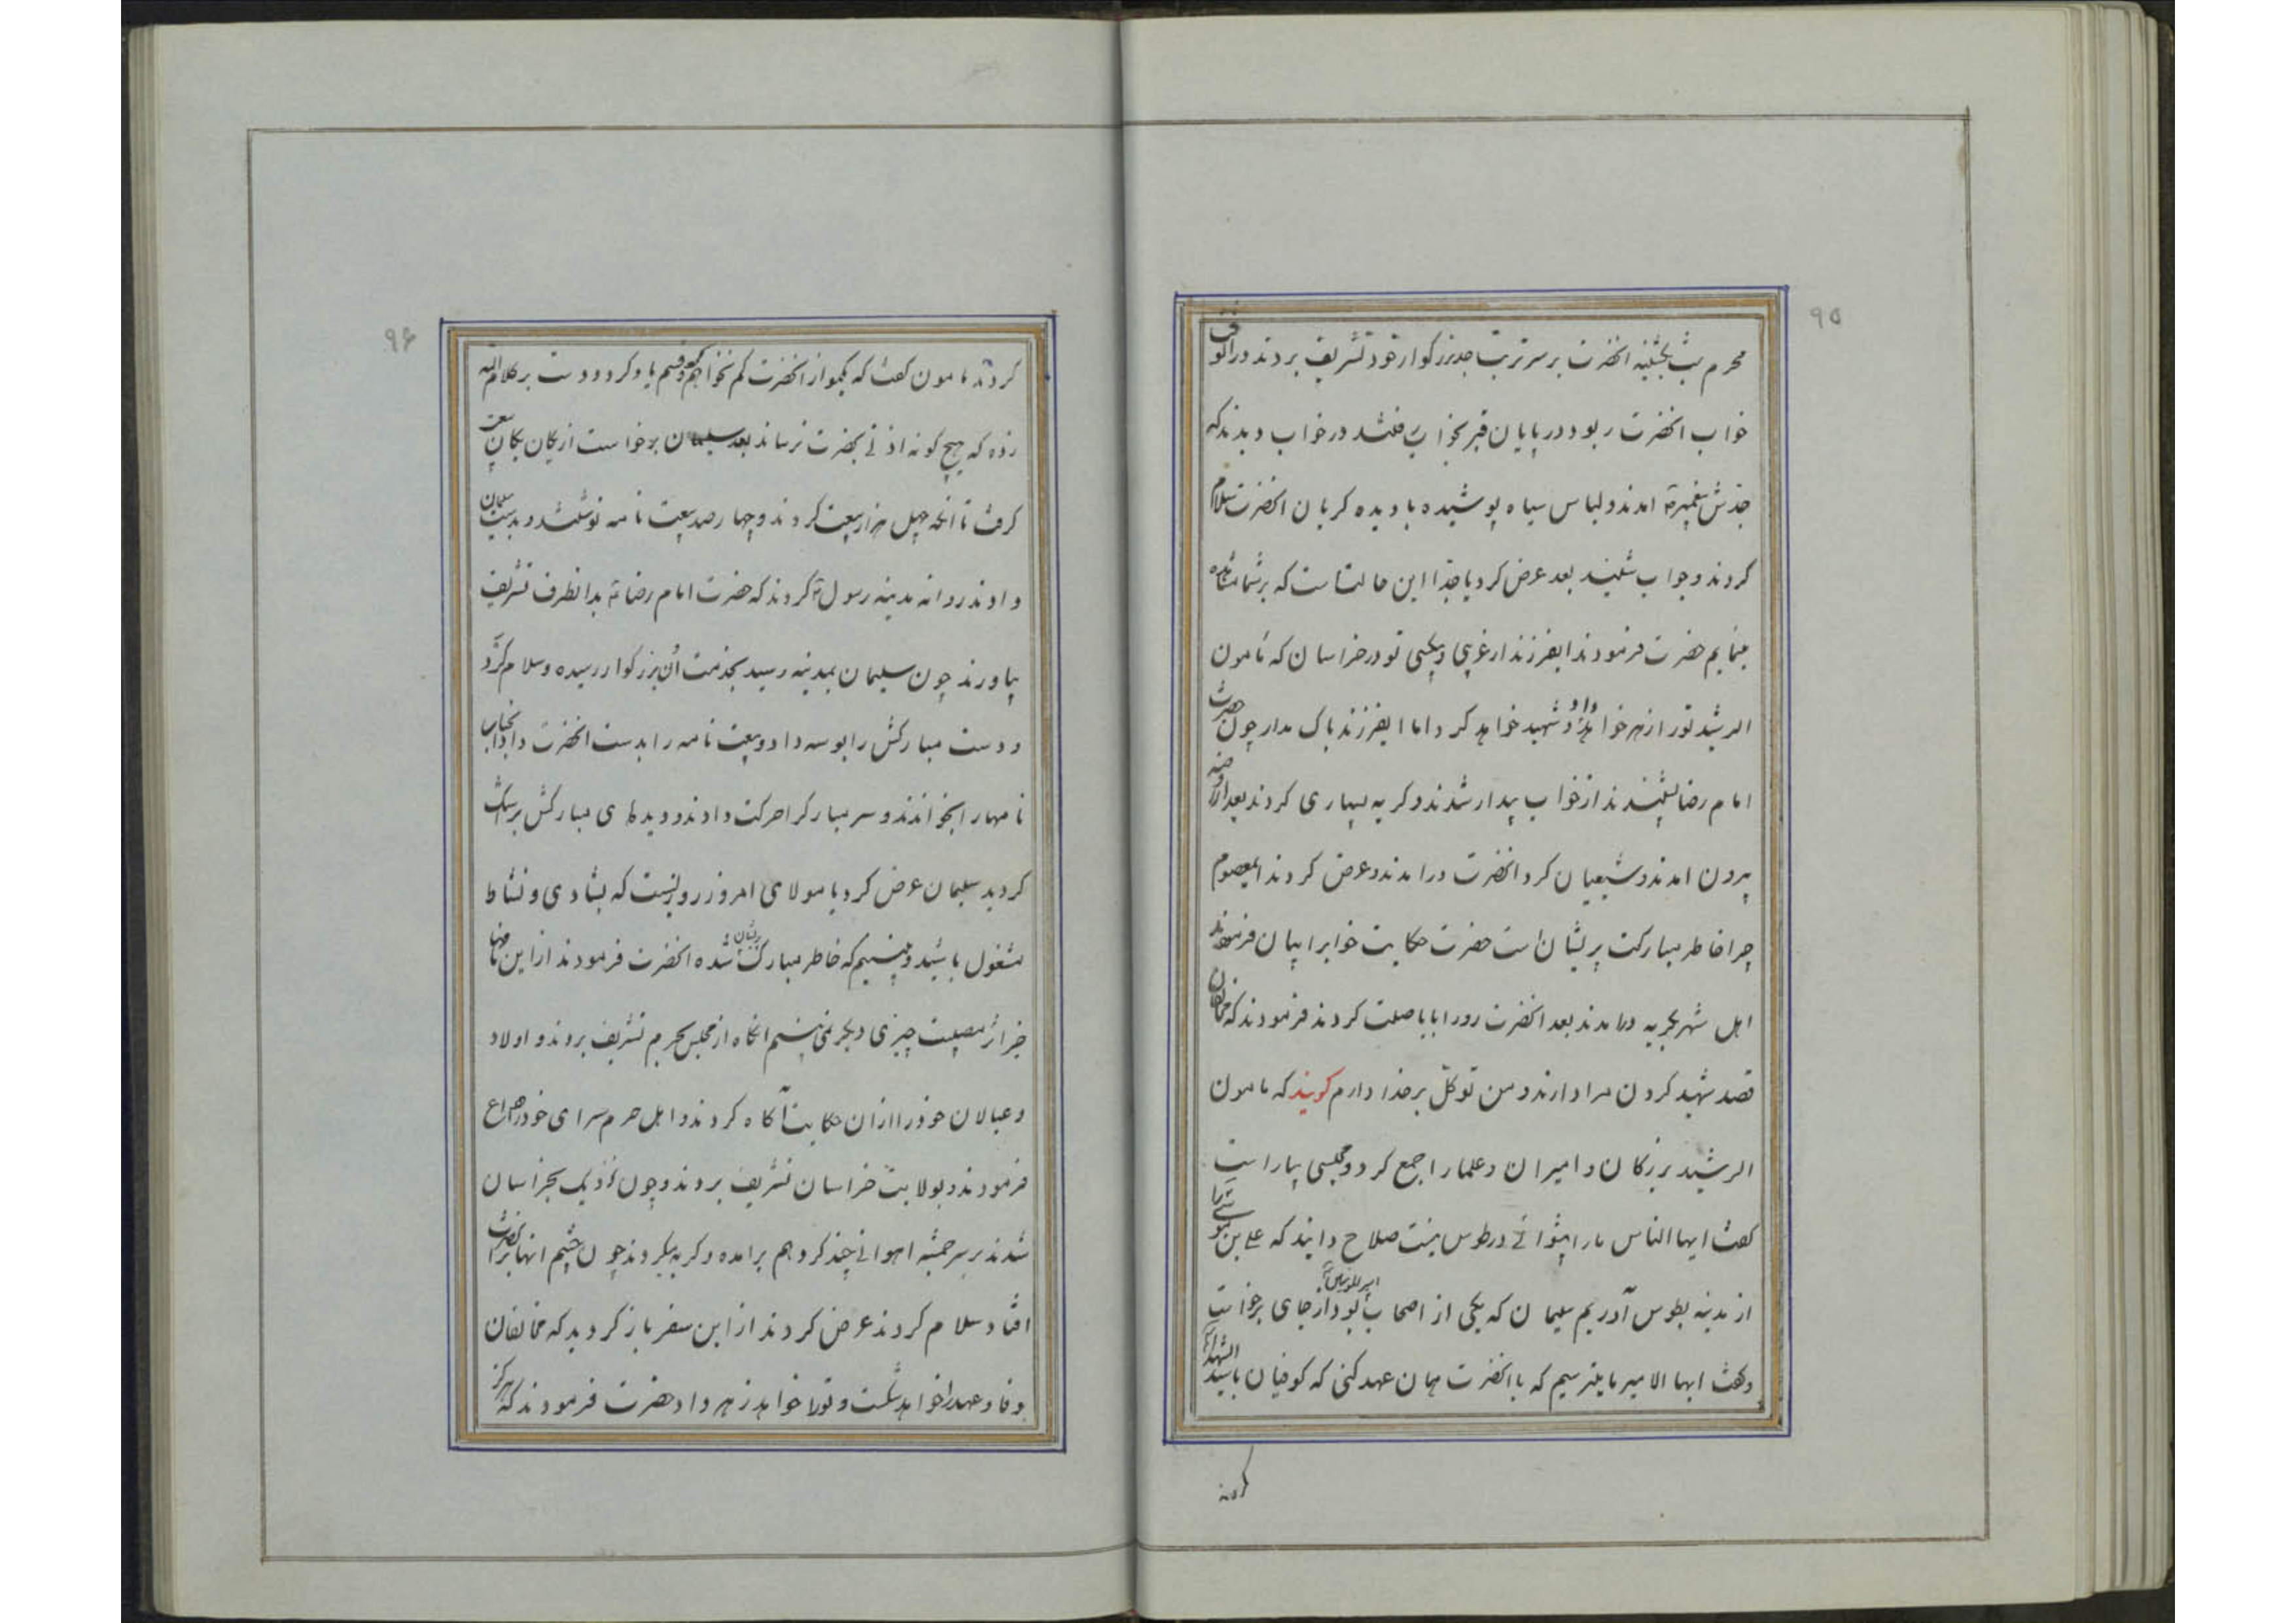 ۹۵
محرم شب پنجشنبه انحضرت بر سر تربت جد بزرکوار خود تشریف بردند در انوقت
خواب انحضرت ربود در پایان قبر بخواب رفتند در خواب دیدند که
جدش پیغمبر امدند و لباس سیاه پوشیده با دیده کریان انحضرت سلام
کردند و جواب شنیدند بعد عرض کرد یا جدا این حالتست که بر شما مشاهده
مینمایم حضرت فرمودند ایفرزند از غریبی و بیکسی تو در خراسان که مامون
الرشید تورا زهر خواهد داد و شهید خواهد کرد اما ایفرزند باک مدار چون حضرت
امام رضا شنیدند از خواب بیدار شدند و کریه بسیاری کردند بعد از روضه
بیرون امدند و شیعیان کرد انحضرت در امدند و عرض کردند ایمعصوم
چرا خاطر مبارکت پریشان است حضرت حکایت خوابرا بیان فرمودند
اهل شهر بکریه در امدند بعد انحضرت رو را باباصلت کردند فرمودند که مخالفان
قصد شهید کردن مرا دارند و من توکل بر خدا دارم کویند که مامون
الرشید بزرکان و امیران و علما را جمع کرد و مجلسی بیاراست
کفت ایها الناس ما را پیشوائی در طوس نیست صلاح دانید که علی بن موسی را
از مدینه بطوس آوریم سلیمان که یکی از اصحاب امیرالمومنین بود از جای برخواست
و کفت ایها الامیر ما میترسیم که با انحضرت همان عهد کنی که کوفیان با سید الشهدا
کردند
۹۶
کردند مامون کفت که یکمو از انحضرت کم نخواهم کرد و قسم یاد کرد و دست بر کلام الله
زده که هیچ کونه اذیتی بحضرت نرساند بعد سلیمان برخواست از یکان یکان بیعت
کرفت تا انکه چهل هزار بیعت کردند و چهار صد بیعت نامه نوشتند و بدست سلیمان
دادند روانه مدینه رسول کردند که حضرت امام رضا بدانطرف تشریف
بیاورند چون سلیمان بمدینه رسید بخدمت آن بزرکوار رسیده و سلام کرد
و دست مبارکش را بوسه داد و بیعت نامه را بدست انحضرت داد انجناب
نامهارا بخواندند و سر مبارکرا حرکت دادند و دیدهای مبارکش پر اشک
کردید سلیمان عرض کرد یا مولای امروز روزیست که بشادی و نشاط
مشغول باشید و میبینیم که خاطر مبارکت پریشان شده انحضرت فرمودند از این نامها
جز اثر مصیبت چیزی دیکر نمی بینم انکاه از مجلس بحرم تشریف بردند و اولاد
و عیالان خود را از ان حکایت آکاه کردند و اهل حرم سرای خود را وداع
فرمودند و بولایت خراسان تشریف بردند و چون نزدیک بخراسان
شدند بر سر چشمه اهوانی چند کرد هم برامده و کریه میکردند چون چشم انها بر انحضرت
افتاد سلام کردند عرض کردند از این سفر باز کردید که مخالفان
وفا و عهد را خواهد شکست و تورا خواهد زهر داد حضرت فرمودند که هرکز